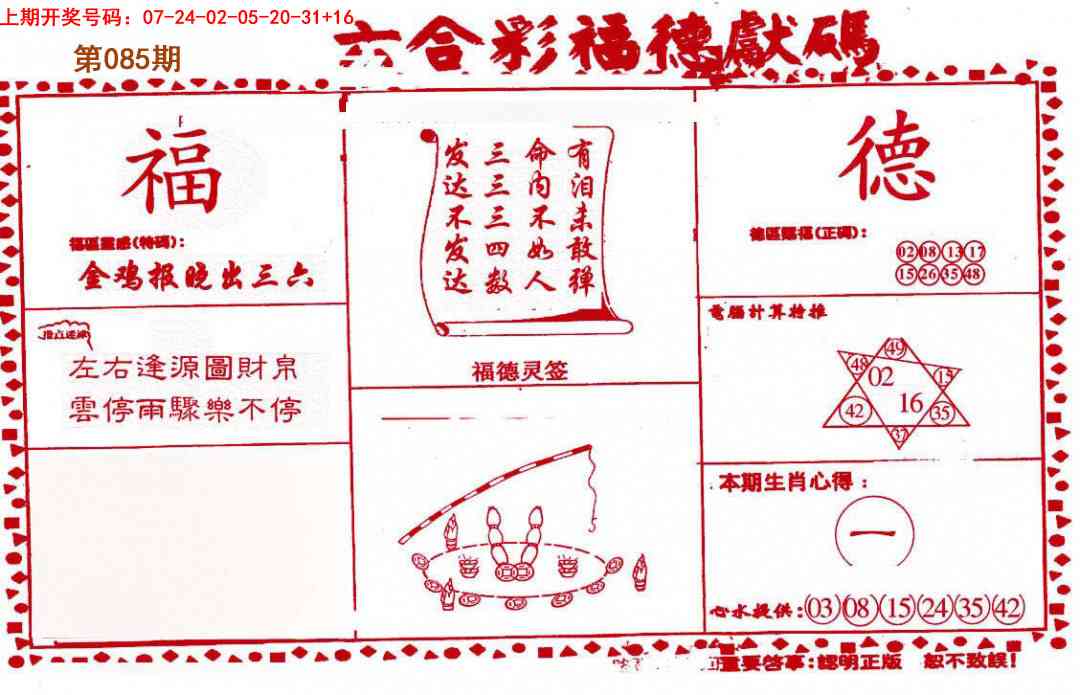 上期开奖号码：07-24-02-05-20-31+16
第085期
六合彩福德獻碼
福
福區靈感(特碼)：
金鸡报晓出三六
左右逢源圖財帛
雲停雨驟樂不停
有泪未敢弹
命内不如人
三三三四数
发达不发达
福德灵签
德
德區賜福(正碼)：
02 08 13 17
15 26 35 48
電腦計算特推
49
48 02 15
42 16 35
37
本期生肖心得：
一
心水提供：03 08 15 24 35 42
重要啓事：認明正版 恕不致誤！